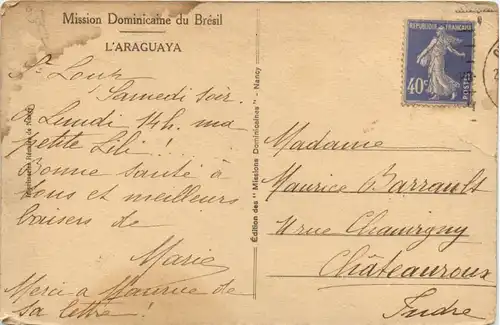 Mission Dominicaine du Brésil
L'ARAGUAYA
Samedi soir.
à Lundi 14h. ma
petite Lili !...
Bonne santé à
vous et meilleurs
baisers de
Marie
Merci à Maurice de
sa lettre !
Édition des "Missions Dominicaines" - Nancy
REPUBLIQUE FRANÇAISE
40c
POSTES
Madame
Maurice Barrault
rue Chauvigny
Châteauroux
Indre